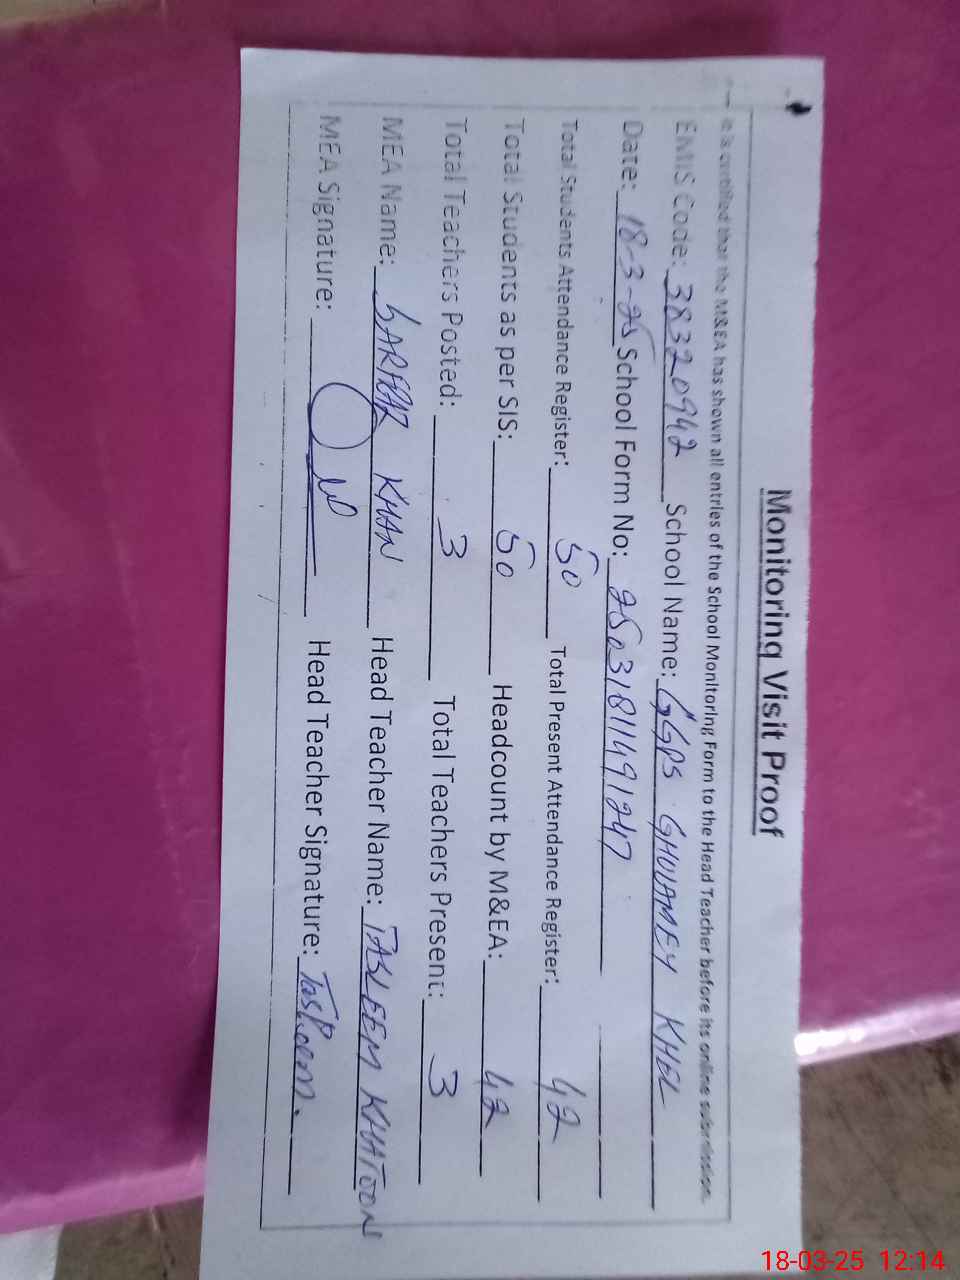 Monitoring Visit Proof
It is certified that the M&EA has shown all entries of the School Monitoring Form to the Head Teacher before its online submission.
EMIS Code: 38320942 School Name: GGPS GHULAMEY KHEL
Date: 18-3-25 School Form No: 25031811491247
Total Students Attendance Register: 50 Total Present Attendance Register: 42
Total Students as per SIS: 50 Headcount by M&EA: 42
Total Teachers Posted: 3 Total Teachers Present: 3
MEA Name: KHAN Head Teacher Name: TASLEEM KHATOON
MEA Signature: Head Teacher Signature: Tasleem.
18-03-25 12:14